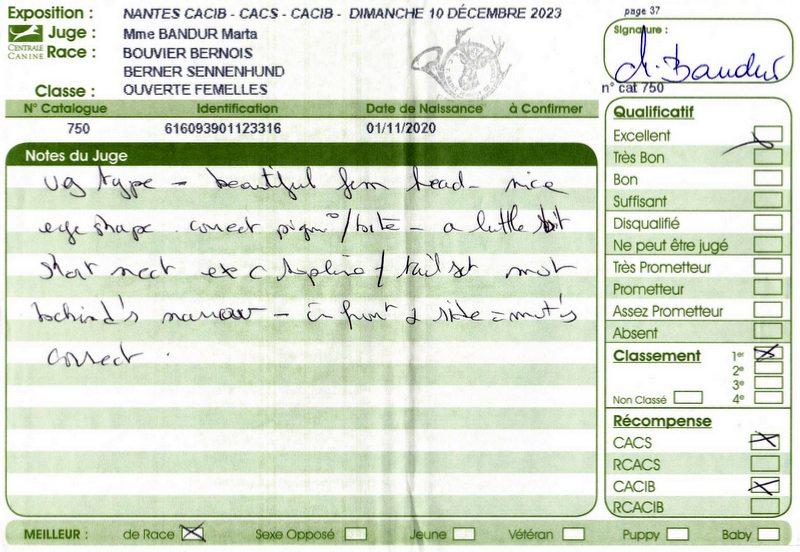 Exposition : NANTES CACIB - CACS - CACIB - DIMANCHE 10 DÉCEMBRE 2023
page 37
CENTRALE CANINE
Juge : Mme BANDUR Marta
Race : BOUVIER BERNOIS
BERNER SENNENHUND
Classe : OUVERTE FEMELLES
Signature :
M. Bandur
n° cat 750
N° Catalogue Identification Date de Naissance à Confirmer
750 616093901123316 01/11/2020
Notes du Juge
vg type - beautiful fem head - nice
eye shape . correct pigm°/bite - a little bit
short neck exc topline / tail set mvt
behind's narrow - in front & side = mvt's
correct .
Qualificatif
Excellent
Très Bon
Bon
Suffisant
Disqualifié
Ne peut être jugé
Très Prometteur
Prometteur
Assez Prometteur
Absent
Classement 1er
2e
3e
Non Classé 4e
Récompense
CACS
RCACS
CACIB
RCACIB
MEILLEUR : de Race Sexe Opposé Jeune Vétéran Puppy Baby